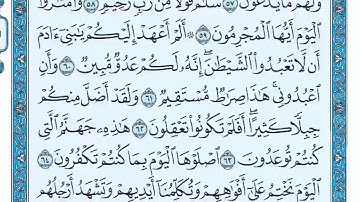 وَلَهُم مَّا يَدَّعُونَ ٥٧ سَلَٰمٌ قَوْلًا مِّن رَّبٍّ رَّحِيمٍ ٥٨ وَٱمْتَٰزُوا۟
ٱلْيَوْمَ أَيُّهَا ٱلْمُجْرِمُونَ ٥٩ ۞ أَلَمْ أَعْهَدْ إِلَيْكُمْ يَٰبَنِىٓ ءَادَمَ
أَن لَّا تَعْبُدُوا۟ ٱلشَّيْطَٰنَ إِنَّهُۥ لَكُمْ عَدُوٌّ مُّبِينٌ ٦٠ وَأَنِ
ٱعْبُدُونِى هَٰذَا صِرَٰطٌ مُّسْتَقِيمٌ ٦١ وَلَقَدْ أَضَلَّ مِنكُمْ
جِبِلًّا كَثِيرًا أَفَلَمْ تَكُونُوا۟ تَعْقِلُونَ ٦٢ هَٰذِهِۦ جَهَنَّمُ ٱلَّتِى
كُنتُمْ تُوعَدُونَ ٦٣ ٱصْلَوْهَا ٱلْيَوْمَ بِمَا كُنتُمْ تَكْفُرُونَ ٦٤
ٱلْيَوْمَ نَخْتِمُ عَلَىٰٓ أَفْوَٰهِهِمْ وَتُكَلِّمُنَآ أَيْدِيهِمْ وَتَشْهَدُ أَرْجُلُهُم